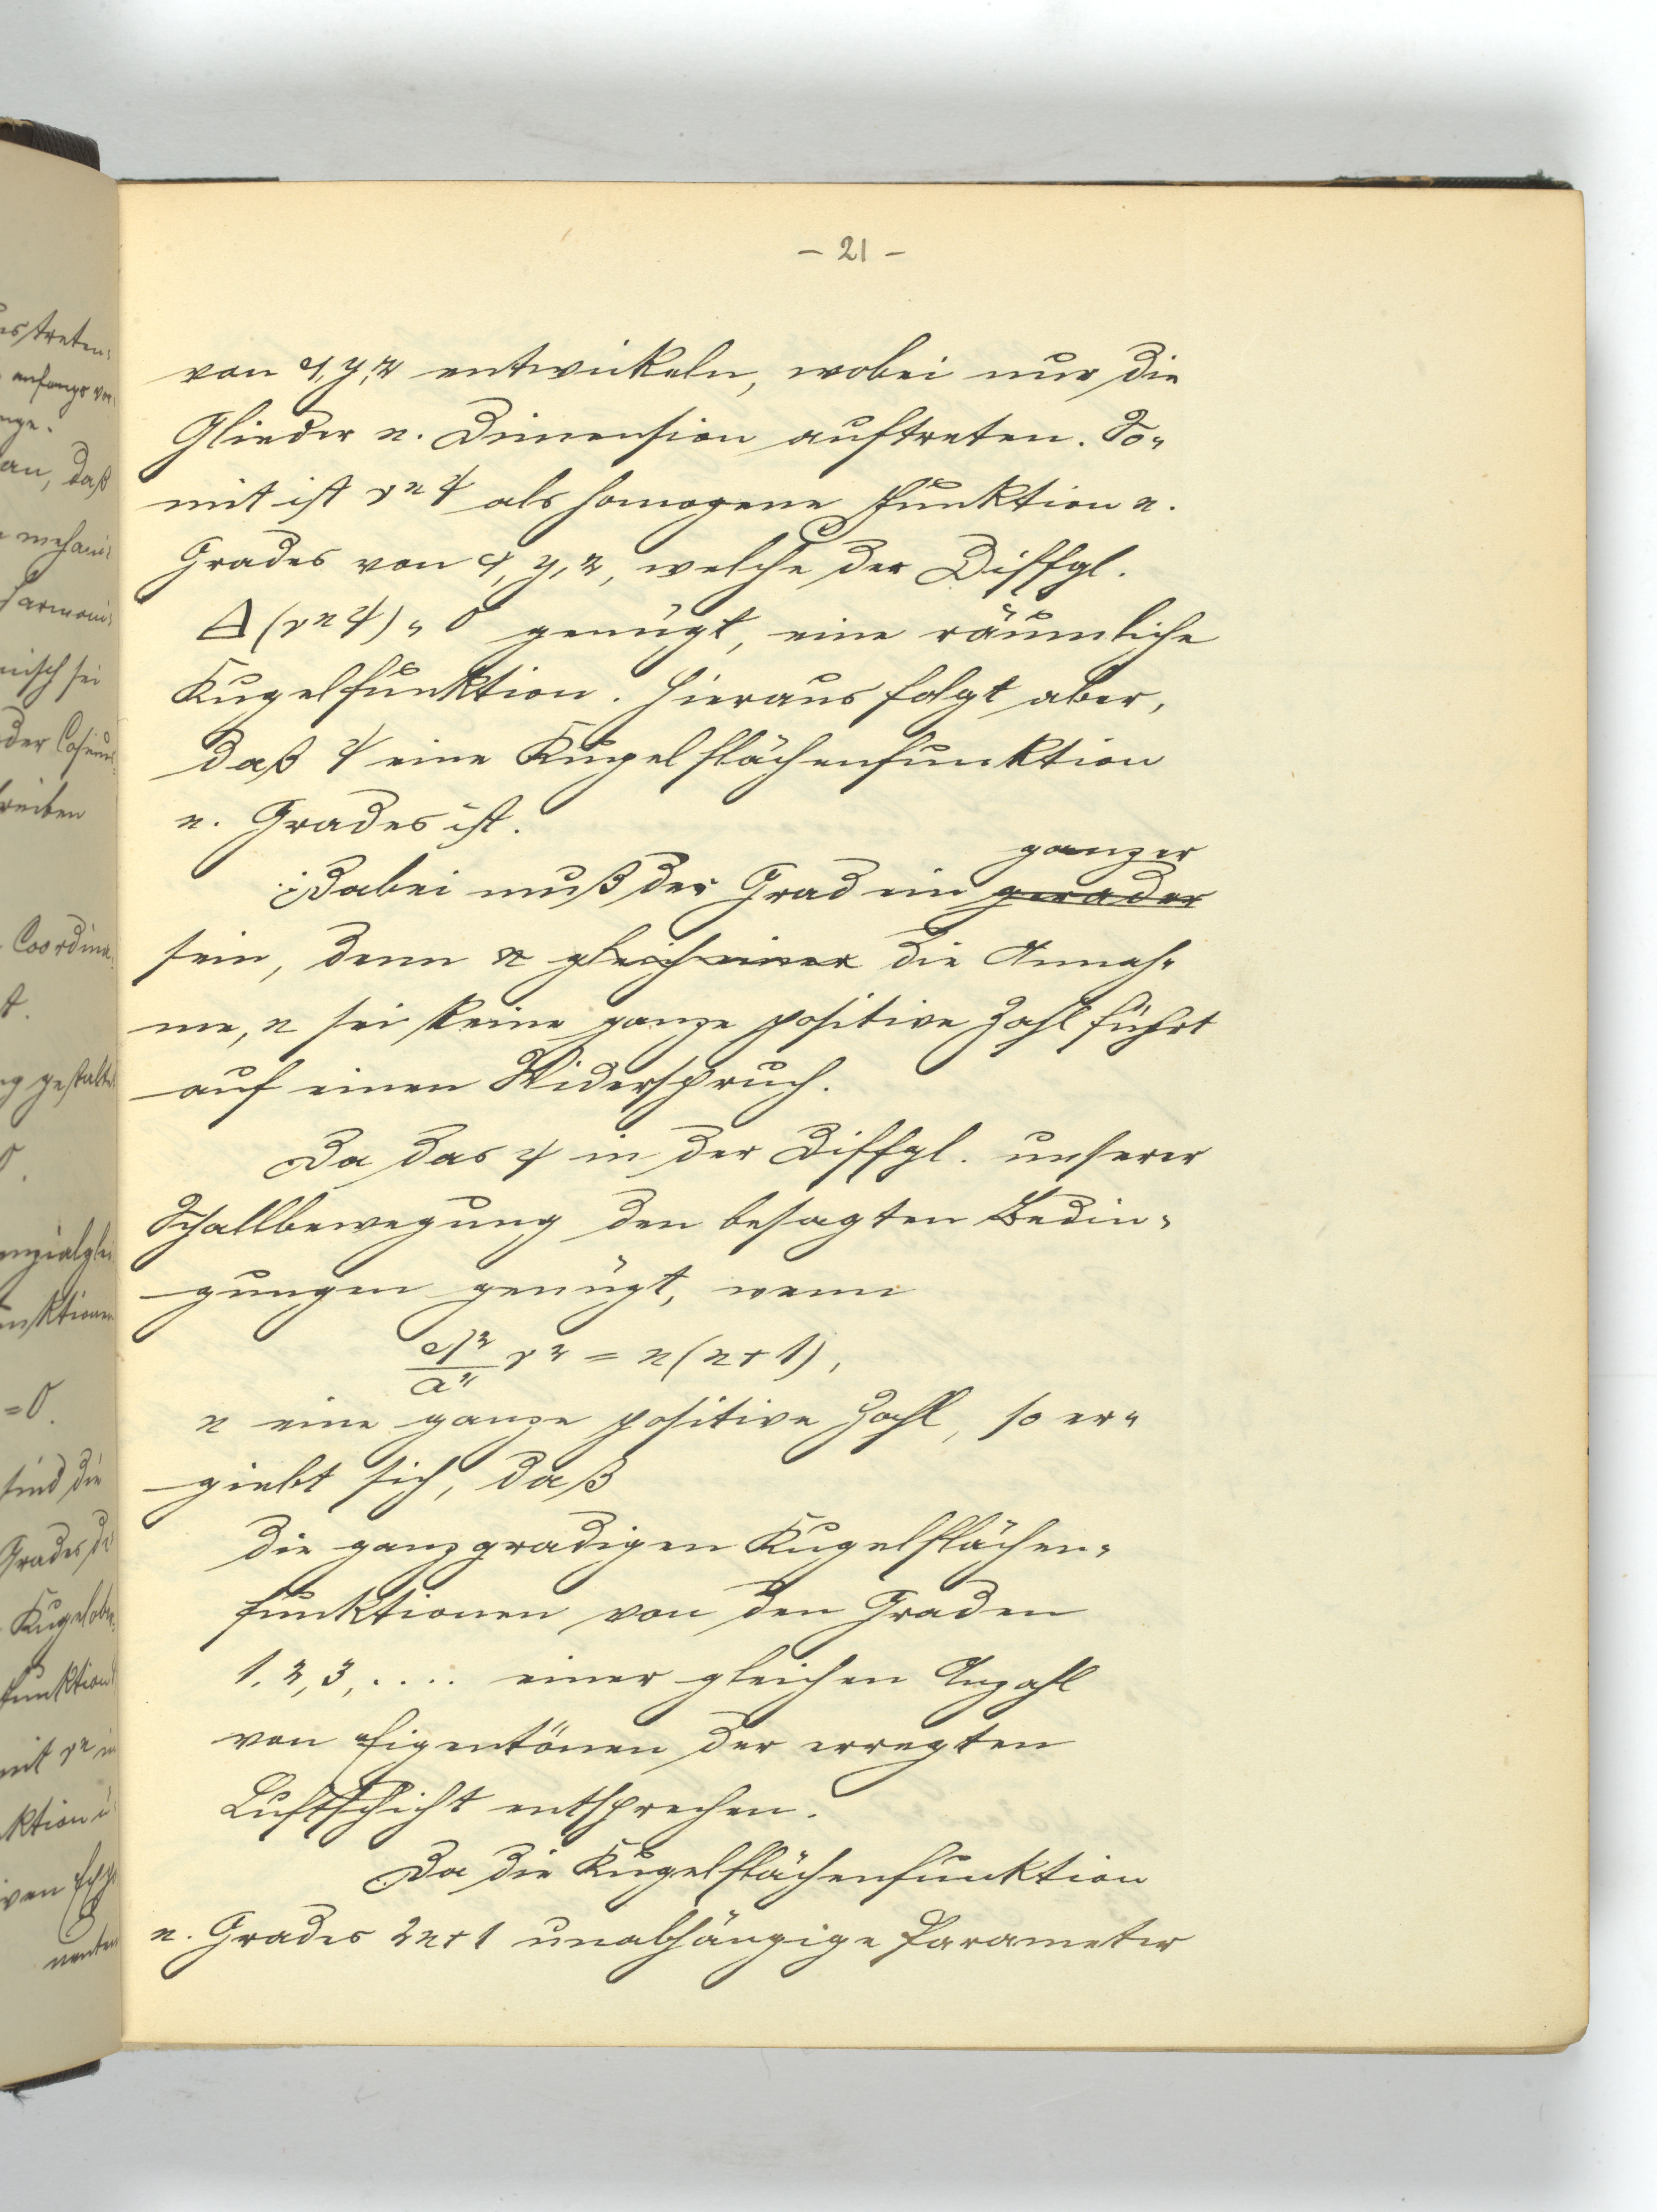 - 21 -
von x, y, z entwickeln, wobei nur die
Glieder n. Dimension auftreten. So-
mit ist rⁿ ψ als homogene Funktion n.
Grades von x, y, z, welche der Diffgl.
Δ(rⁿ ψ) = 0 genügt, eine räumliche
Kugelfunktion. Hieraus folgt aber,
daß ψ eine Kugelflächenfunktion
n. Grades ist.
ganzer
Dabei muß der Grad ein gerader
sein, denn n gleich einer die Annah-
me, n sei keine ganze positive Zahl führt
auf einen Widerspruch.
Da das ψ in der Diffgl. unserer
Schallbewegung den besagten Bedin-
gungen genügt, wenn
r² = n(n+1),
n eine ganze positive Zahl, so er-
giebt sich, daß
die ganzgradigen Kugelflächen-
funktionen von den Graden
1, 2, 3, .... einer gleichen Anzahl
von Eigentönen der erregten
Luftschicht entsprechen.
Da die Kugelflächenfunktion
n. Grades 2n+1 unabhängige Parameter